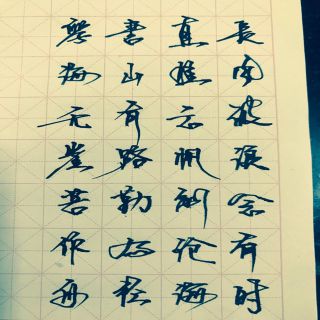 長风破浪会有时
直挂云帆济沧海
書山有路勤为径
學海无崖苦作舟